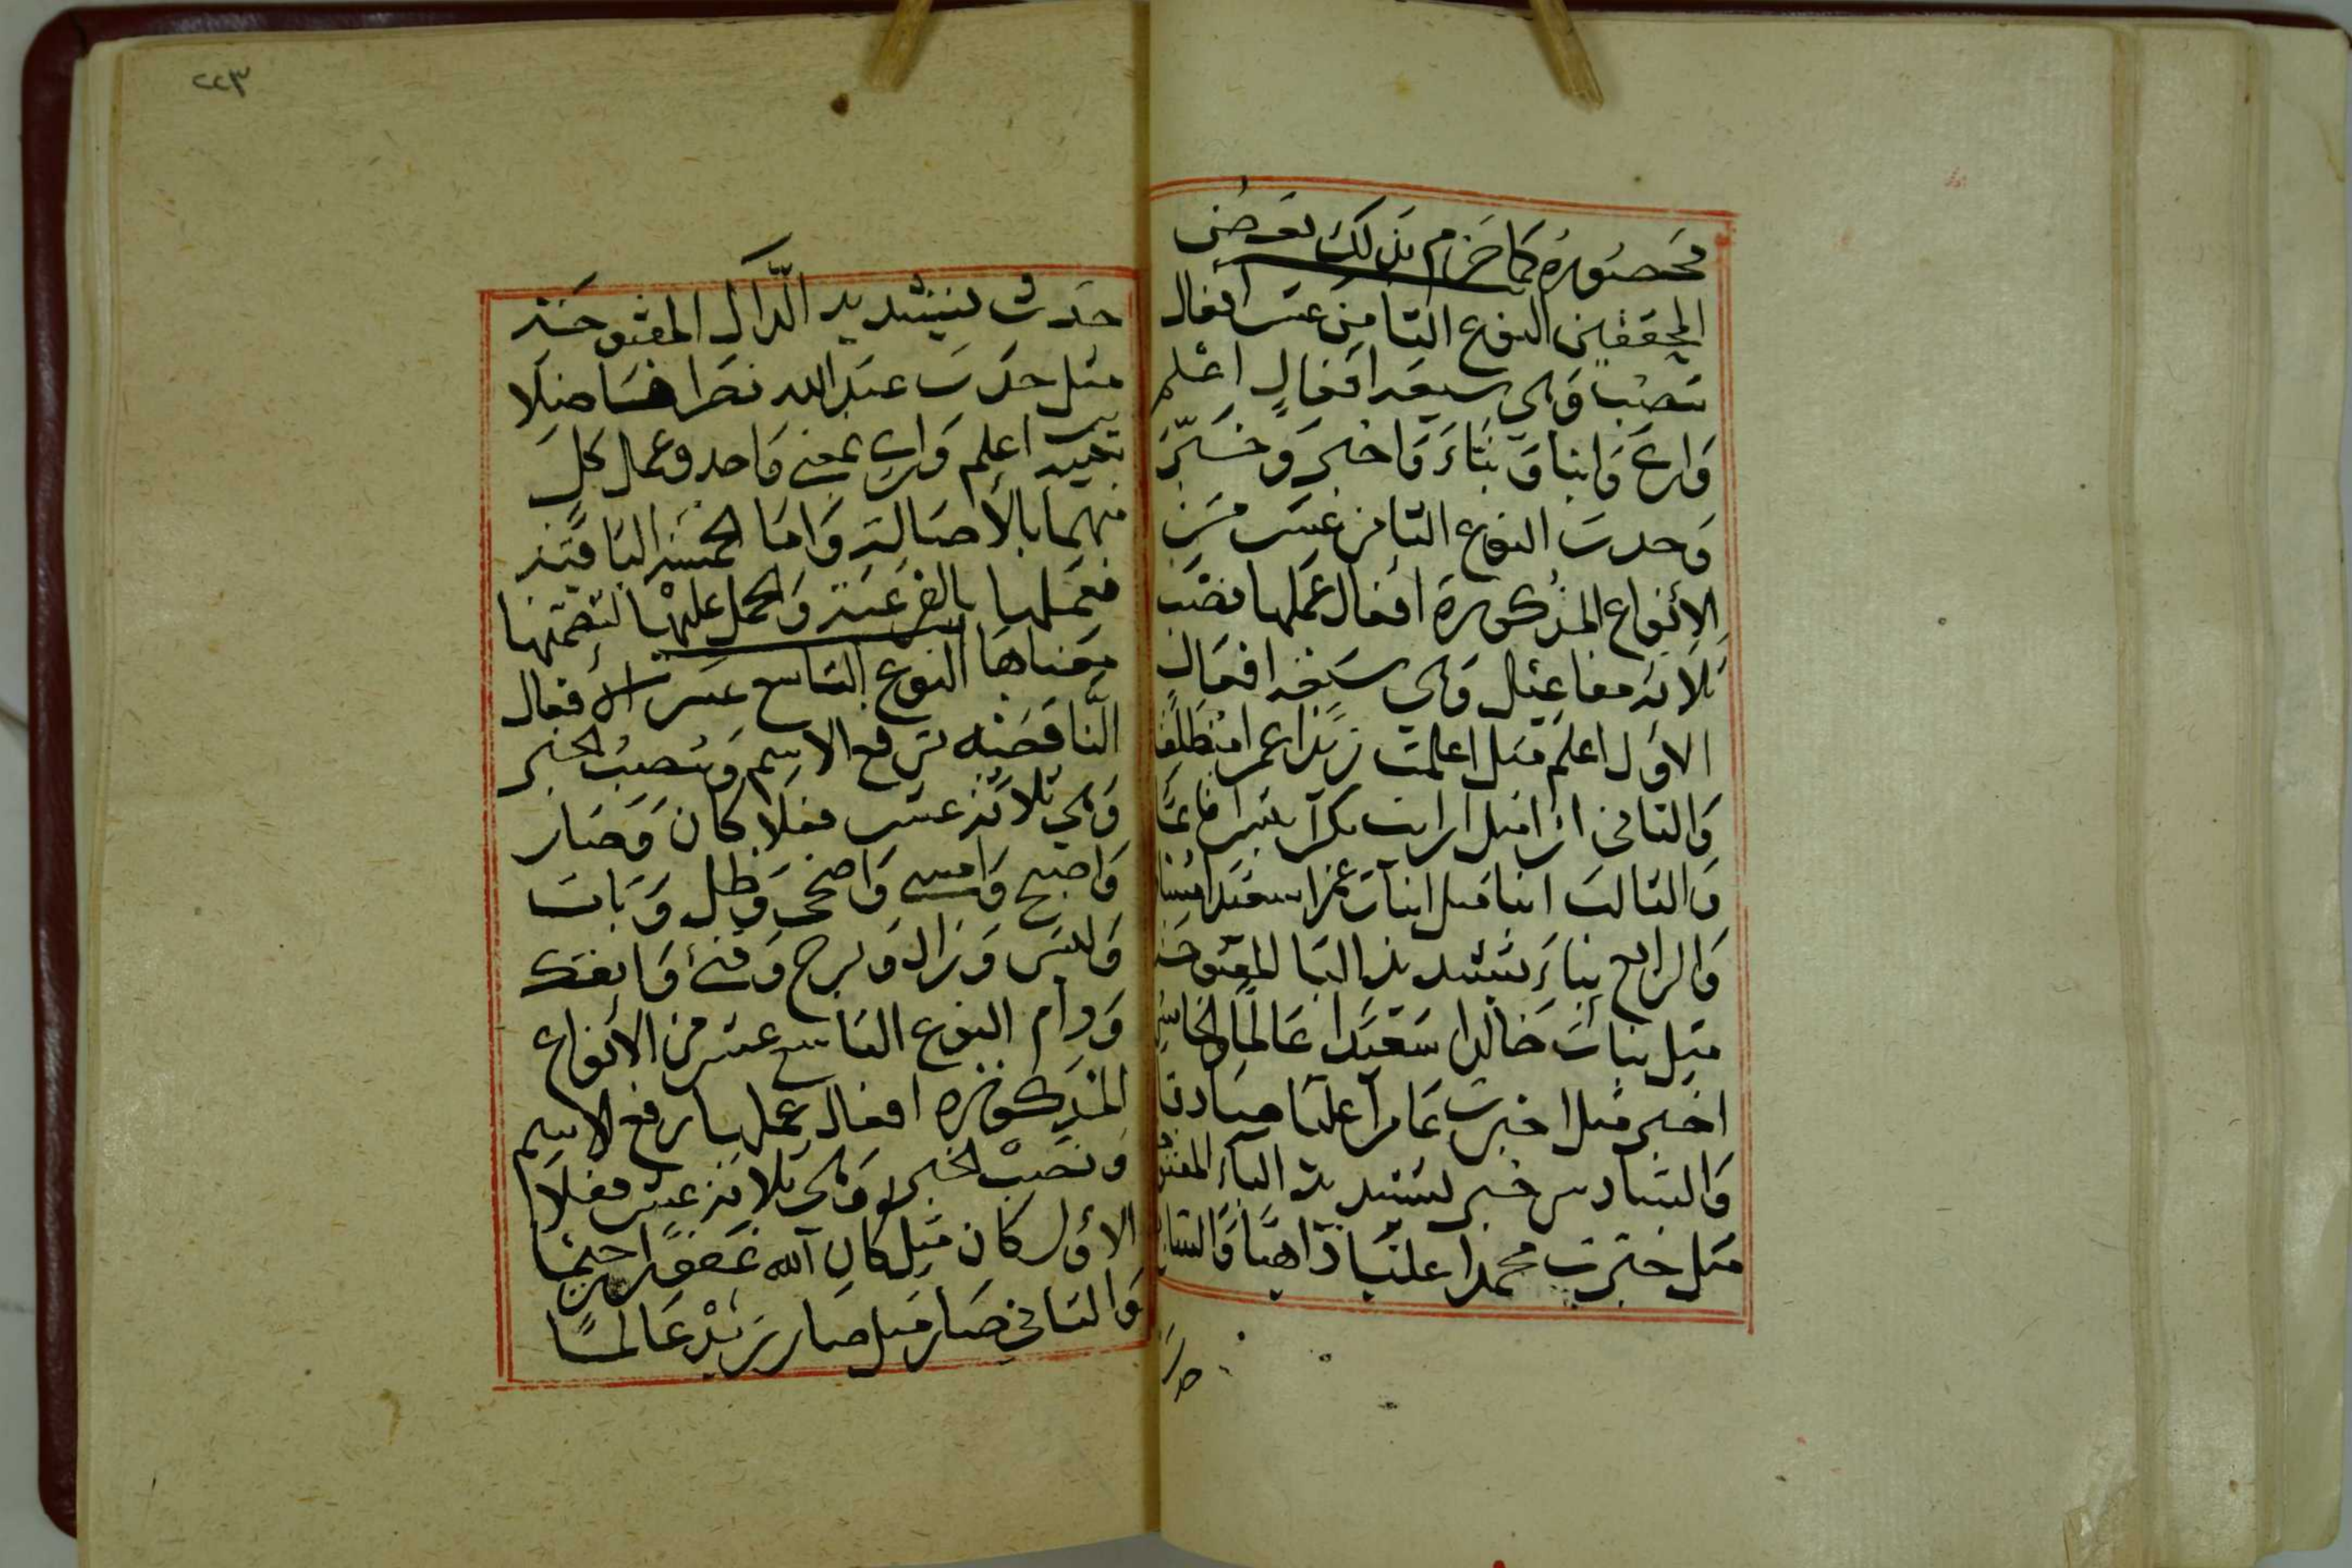 محصورة كما جزم بذلك بعض
المحققين النوع الثامن عشر افعال
تنصب وهي سبعة افعال اعلم
وارى وانبا ونباء واخبر وخبّر
وحدث النوع الثامن عشر من
الأنواع المذكورة افعال عملها نصب
ثلاثة مفاعيل وهي سبعة افعال
الاول اعلم مثل اعلمت زيدا عمرا منطلقا
والثاني ارا مثل ارايت بكرا بشرا قائما
والثالث انبا مثل انبات عمرا سعيدا
والرابع نباء بتشديد البا المفتوحة
مثل نبأت خالدا سعيدا عالما والخامس
اخبر مثل اخبرت عامرا عليا صادقا
والسادس خبر بتشديد الباء المفتوحة
مثل خبرت محمدا عليا ذاهبا والسابع
٢٢٣
حدث بتشديد الدال المفتوحة
مثل حدث عبد الله نصرا فاضلا
تنبيه اعلم وارى بمعنى واحد وعمل كل
منهما بالأصالة واما الخمسة الباقية
فعملها بالفرعية والحمل عليها لتضمنها
معناها النوع التاسع عشر الأفعال
الناقصة ترفع الاسم وتنصب الخبر
وهي ثلاثة عشر فعلا كان وصار
واصبح وامسى واضحى وظل وبات
وليس وزال وبرح وفتئ وانفك
ودام النوع التاسع عشر من الأنواع
المذكورة افعال عملها رفع الاسم
ونصب الخبر وهي ثلاثة عشر فعلا
الاول كان مثل كان الله غفورا رحيما
والثاني صار مثل صار زيد عالما